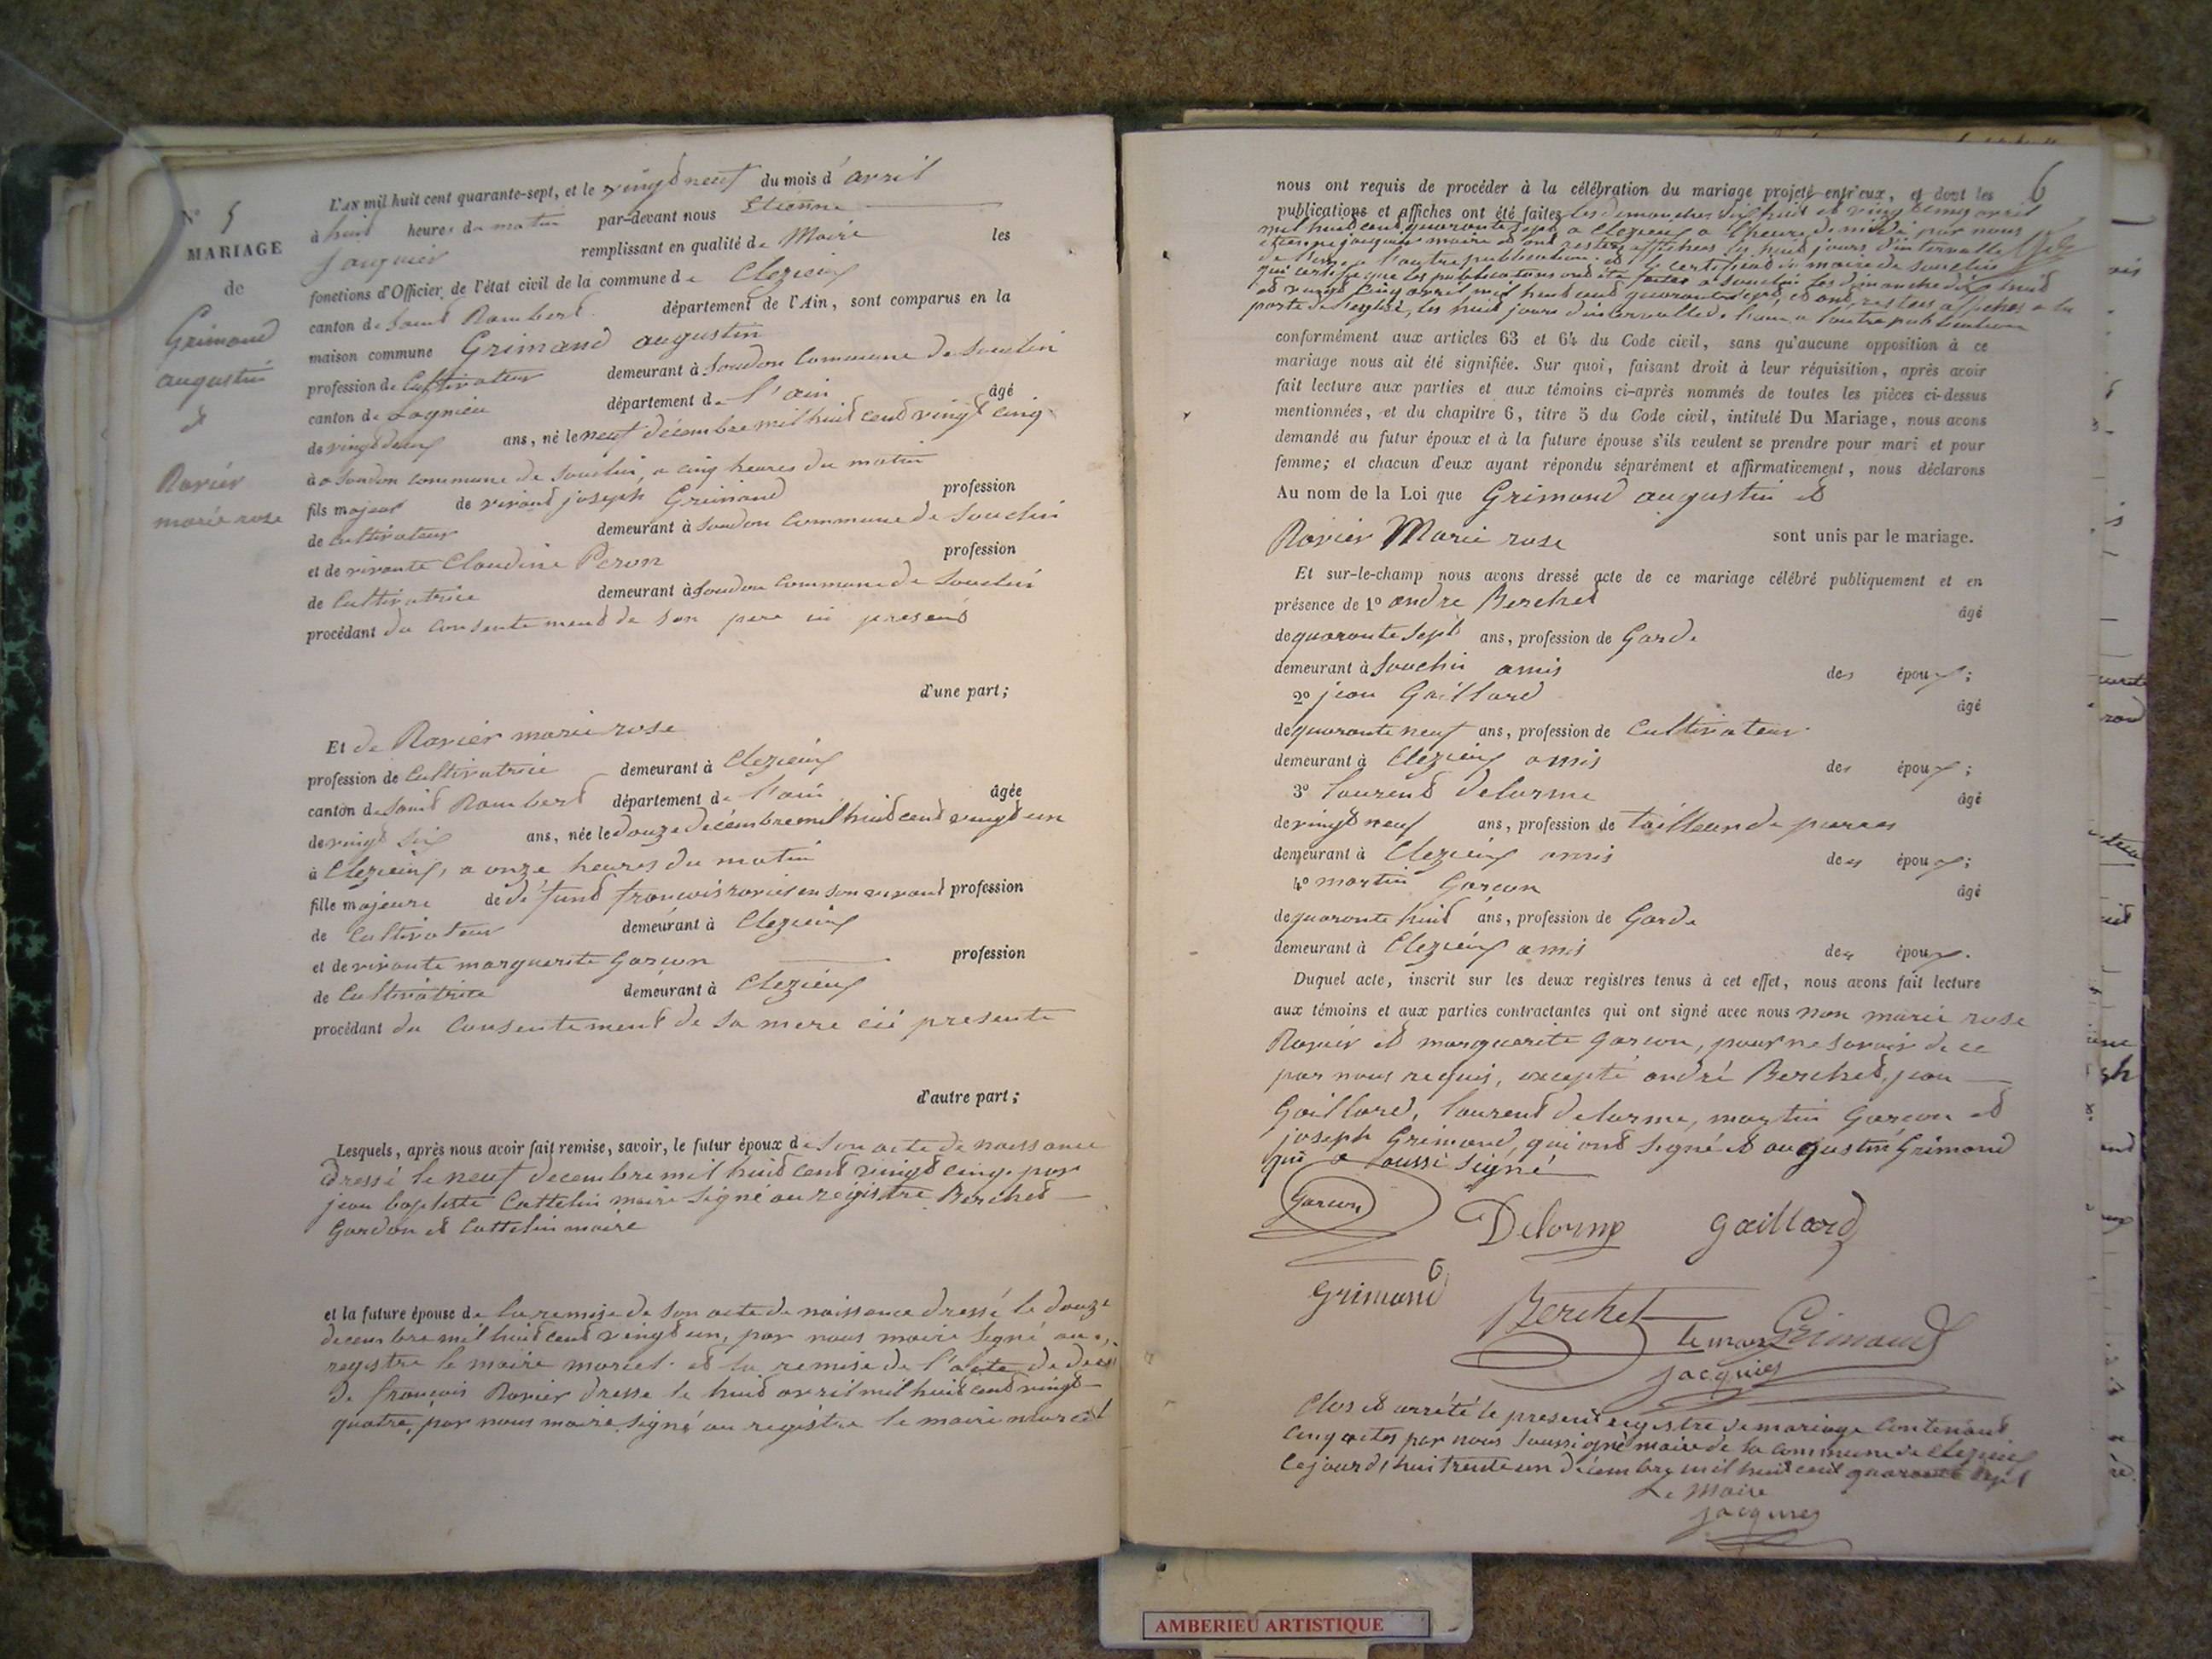 N° 5
MARIAGE
de
Grimand
augustin
&
Ravier
marie rose
L'AN mil huit cent quarante-sept, et le vingt neuf du mois d'avril
à huit heures du matin par-devant nous Etienne
Jacquier remplissant en qualité de Maire les
fonctions d'Officier de l'état civil de la commune de Clezieux
canton de Saint Rambert département de l'Ain, sont comparus en la
maison commune Grimand augustin
profession de Cultivateur demeurant à Soudon Commune de Souclin
canton de Lagnieu département de l'ain âgé
de vingt deux ans, né le neuf décembre mil huit cent vingt cinq
à a Soudon commune de Souclin, a cinq heures du matin
fils majeur de vivant joseph Grimand profession
de cultivateur demeurant à Soudon Commune de Souclin
et de vivante Claudine Peron profession
de Cultivatrice demeurant à Soudon Commune de Souclin
procédant du consentement de son pere ici present
d'une part;
Et de Ravier marie rose
profession de Cultivatrice demeurant à Clezieux
canton de Saint Rambert département de l'ain âgée
de vingt six ans, née le douze decembre mil huit cent vingt un
à Clezieux, a onze heures du matin
fille majeure de défunt francois ravier en son vivant profession
de Cultivateur demeurant à Clezieux
et de vivante marguerite Garcon profession
de Cultivatrice demeurant à Clezieux
procédant du Consentement de sa mere ici presente
d'autre part;
Lesquels, après nous avoir fait remise, savoir, le futur époux de son acte de naissance
dressé le neuf decembre mil huit cent vingt cinq par
jean baptiste Cattelin maire signé au registre Berchet
Gardon et Cattelin maire
et la future épouse de la remise de son acte de naissance dressé le douze
decembre mil huit cent vingt un, par nous maire signé au
registre le maire marcel. et la remise de l'acte de deces
de francois Ravier dresse le huit avril mil huit cent vingt
quatre, par nous maire signé au registre le maire marcel
6
nous ont requis de procéder à la célébration du mariage projeté entr'eux, et dont les
publications et affiches ont été faites les dimanches dix huit et vingt cinq avril
mil huit cent quarante sept a Clezieux a l'heure de midi par nous
etienne jacquier maire et ont restes affichees les huit jours d'intervalle
de l'une a l'autre publication. et le certificat du maire de Souclin
qui certifie que les publications ont été faites a Souclin les dimanche dix huit
et vingt cinq avril mil huit cent quarante sept, et ont restees affichees a la
porte de l'eglise, les huit jours d'intervalle de l'une a l'autre publication
conformément aux articles 63 et 64 du Code civil, sans qu'aucune opposition à ce
mariage nous ait été signifiée. Sur quoi, faisant droit à leur réquisition, après avoir
fait lecture aux parties et aux témoins ci-après nommés de toutes les pièces ci-dessus
mentionnées, et du chapitre 6, titre 5 du Code civil, intitulé Du Mariage, nous avons
demandé au futur époux et à la future épouse s'ils veulent se prendre pour mari et pour
femme; et chacun d'eux ayant répondu séparément et affirmativement, nous déclarons
Au nom de la Loi que Grimand augustin et
Ravier Marie rose sont unis par le mariage.
Et sur-le-champ nous avons dressé acte de ce mariage célébré publiquement et en
présence de 1° andré Berchet âgé
de quarante sept ans, profession de Garde
demeurant à Souclin amis des époux;
2° jean Gaillard âgé
de quarante neuf ans, profession de Cultivateur
demeurant à Clezieux amis des époux;
3° laurent delorme âgé
de vingt neuf ans, profession de tailleur de pierres
demeurant à Clezieux amis des époux;
4° martin Garcon âgé
de quarante huit ans, profession de Garde
demeurant à Clezieux amis des époux.
Duquel acte, inscrit sur les deux registres tenus à cet effet, nous avons fait lecture
aux témoins et aux parties contractantes qui ont signé avec nous non marie rose
Ravier et marguerite Garcon, pour ne savoir de ce
par nous requis, excepté andré Berchet, jean
Gaillard, laurent delorme, martin Garcon et
joseph Grimand, qui ont signé et augustin Grimand
qui a aussi signé
Garcon Delorme gaillard
grimand Berchet le maire Grimand
jacquier
Clos et arrêté le present registre de mariage Contenant
Cinq actes par nous soussigné maire de la commune de Clezieux
Cejourd'hui trente un décembre mil huit cent quarante sept
Le Maire
jacquier
AMBERIEU ARTISTIQUE